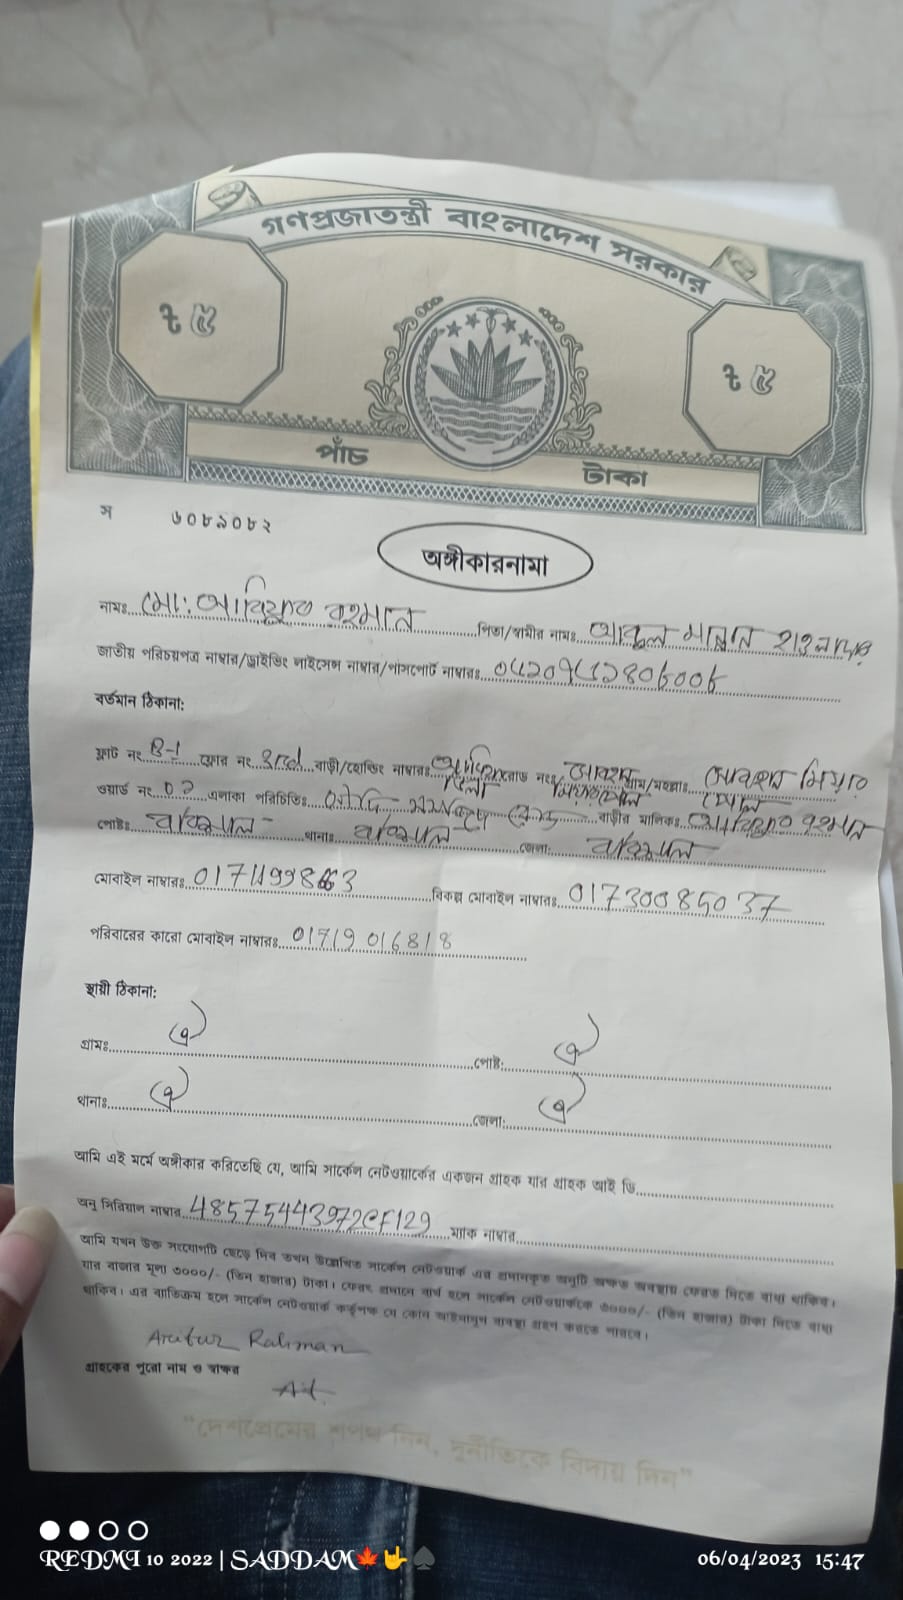 গণপ্রজাতন্ত্রী বাংলাদেশ সরকার
৳ ৫
৳ ৫
পাঁচ টাকা
স ৬০৮৯০৮২
অঙ্গীকারনামা
নামঃ মো: রহমান পিতা/স্বামীর নামঃ
জাতীয় পরিচয়পত্র নাম্বার/ড্রাইভিং লাইসেন্স নাম্বার/পাসপোর্ট নাম্বারঃ
বর্তমান ঠিকানা:
ফ্লাট নং B-1 ফ্লোর নং 3rd বাড়ী/হোল্ডিং নাম্বারঃ রোড নংঃ গ্রাম/মহল্লাঃ
ওয়ার্ড নং এলাকা পরিচিতিঃ বাড়ীর মালিকঃ রহমান
পোষ্টঃ বরিশাল থানাঃ বরিশাল জেলা: বরিশাল
মোবাইল নাম্বারঃ বিকল্প মোবাইল নাম্বারঃ
পরিবারের কারো মোবাইল নাম্বারঃ 01719 016818
স্থায়ী ঠিকানা:
গ্রামঃ ঐ পোষ্ট: ঐ
থানাঃ ঐ জেলা: ঐ
আমি এই মর্মে অঙ্গীকার করিতেছি যে, আমি সার্কেল নেটওয়ার্কের একজন গ্রাহক যার গ্রাহক আই ডি
অনু সিরিয়াল নাম্বার 48575443972CF129 ম্যাক নাম্বার
আমি যখন উক্ত সংযোগটি ছেড়ে দিব তখন উল্লেখিত সার্কেল নেটওয়ার্ক এর প্রদানকৃত অনুটি অক্ষত অবস্থায় ফেরত দিতে বাধ্য থাকিব।
যার বাজার মূল্য ৩০০০/- (তিন হাজার) টাকা। ফেরৎ প্রদানে ব্যর্থ হলে সার্কেল নেটওয়ার্ককে ৩০০০/- (তিন হাজার) টাকা দিতে বাধ্য
থাকিব। এর ব্যতিক্রম হলে সার্কেল নেটওয়ার্ক কর্তৃপক্ষ যে কোন আইনানুগ ব্যবস্থা গ্রহণ করতে পারবে।
Arifur Rahman
গ্রাহকের পুরো নাম ও স্বাক্ষর
"দেশপ্রেমের শপথ নিন, দুর্নীতিকে বিদায় দিন"
REDMI 10 2022 | SADDAM
06/04/2023 15:47